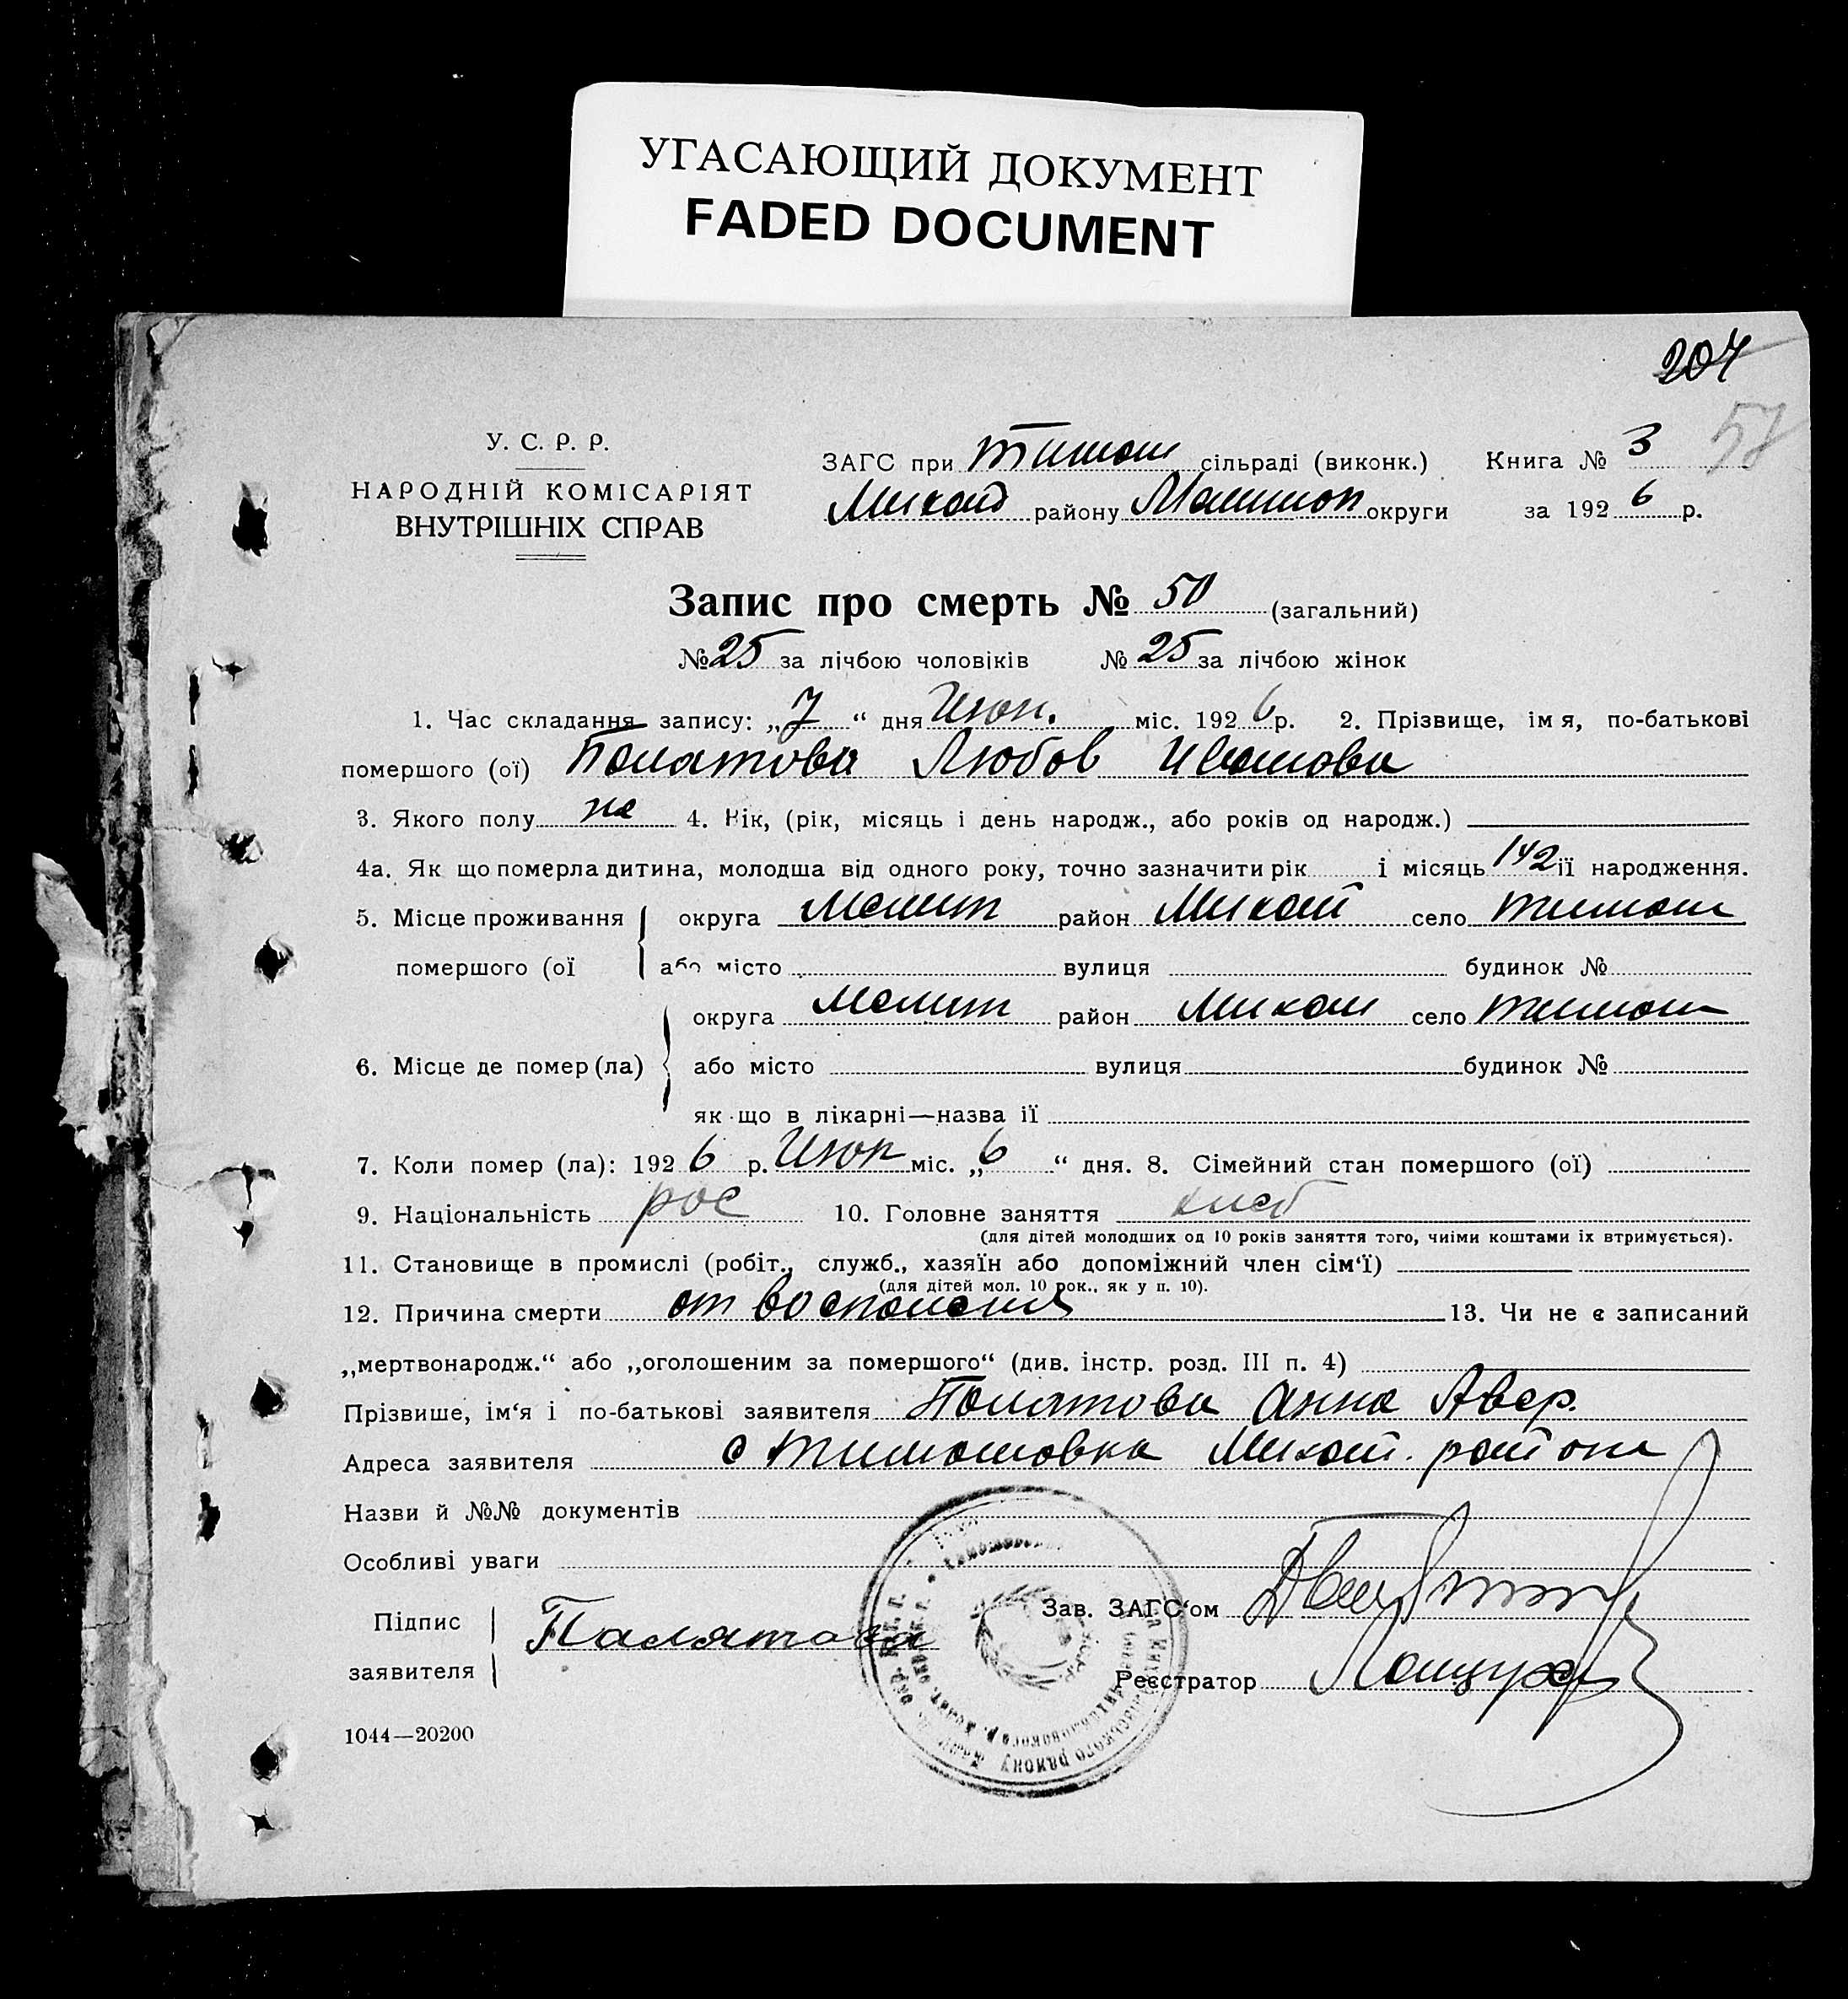 УГАСАЮЩИЙ ДОКУМЕНТ
FADED DOCUMENT
204
57
У. С. Р. Р.
НАРОДНІЙ КОМІСАРІЯТ
ВНУТРІШНІХ СПРАВ
ЗАГС при Тимош сільраді (виконк.) Книга № 3
Михай району округи за 1926 р.
Запис про смерть № 50 (загальний)
№ 25 за лічбою чоловіків № 25 за лічбою жінок
1. Час складання запису: „7“ дня Июн. міс. 1926 р. 2. Прізвище, імя, по-батькові
помершого (ої) Полятова Любов Иванова
3. Якого полу 4. Вік, (рік, місяць і день народж., або років од народж.)
4а. Як що померла дитина, молодша від одного року, точно зазначити рік і місяць ії народження.
5. Місце проживання округа Мелит район Михай село Тимош
помершого (ої або місто вулиця будинок №
округа Мелит район Михай село Тимош
6. Місце де помер (ла) або місто вулиця будинок №
як що в лікарні—назва ії
7. Коли помер (ла): 1926 р. Июн міс. „6“ дня. 8. Сімейний стан помершого (ої)
9. Національність рос 10. Головне заняття хлеб
(для дітей молодших од 10 років заняття того, чиіми коштами іх втримується).
11. Становище в промислі (робіт., служб., хазяїн або допоміжний член сім‘ї)
(для дітей мол. 10 рок., як у п. 10).
12. Причина смерти от воспаления 13. Чи не є записаний
„мертвонародж.“ або „оголошеним за помершого“ (див. інстр. розд. III п. 4)
Прізвише, ім‘я і по-батькові заявителя Полятова Анна Авер.
Адреса заявителя с Тимошовка Михай. района
Назви й №№ документів
Особливі уваги
Підпис
заявителя Палятова
Зав. ЗАГС‘ом
Реєстратор
1044—20200